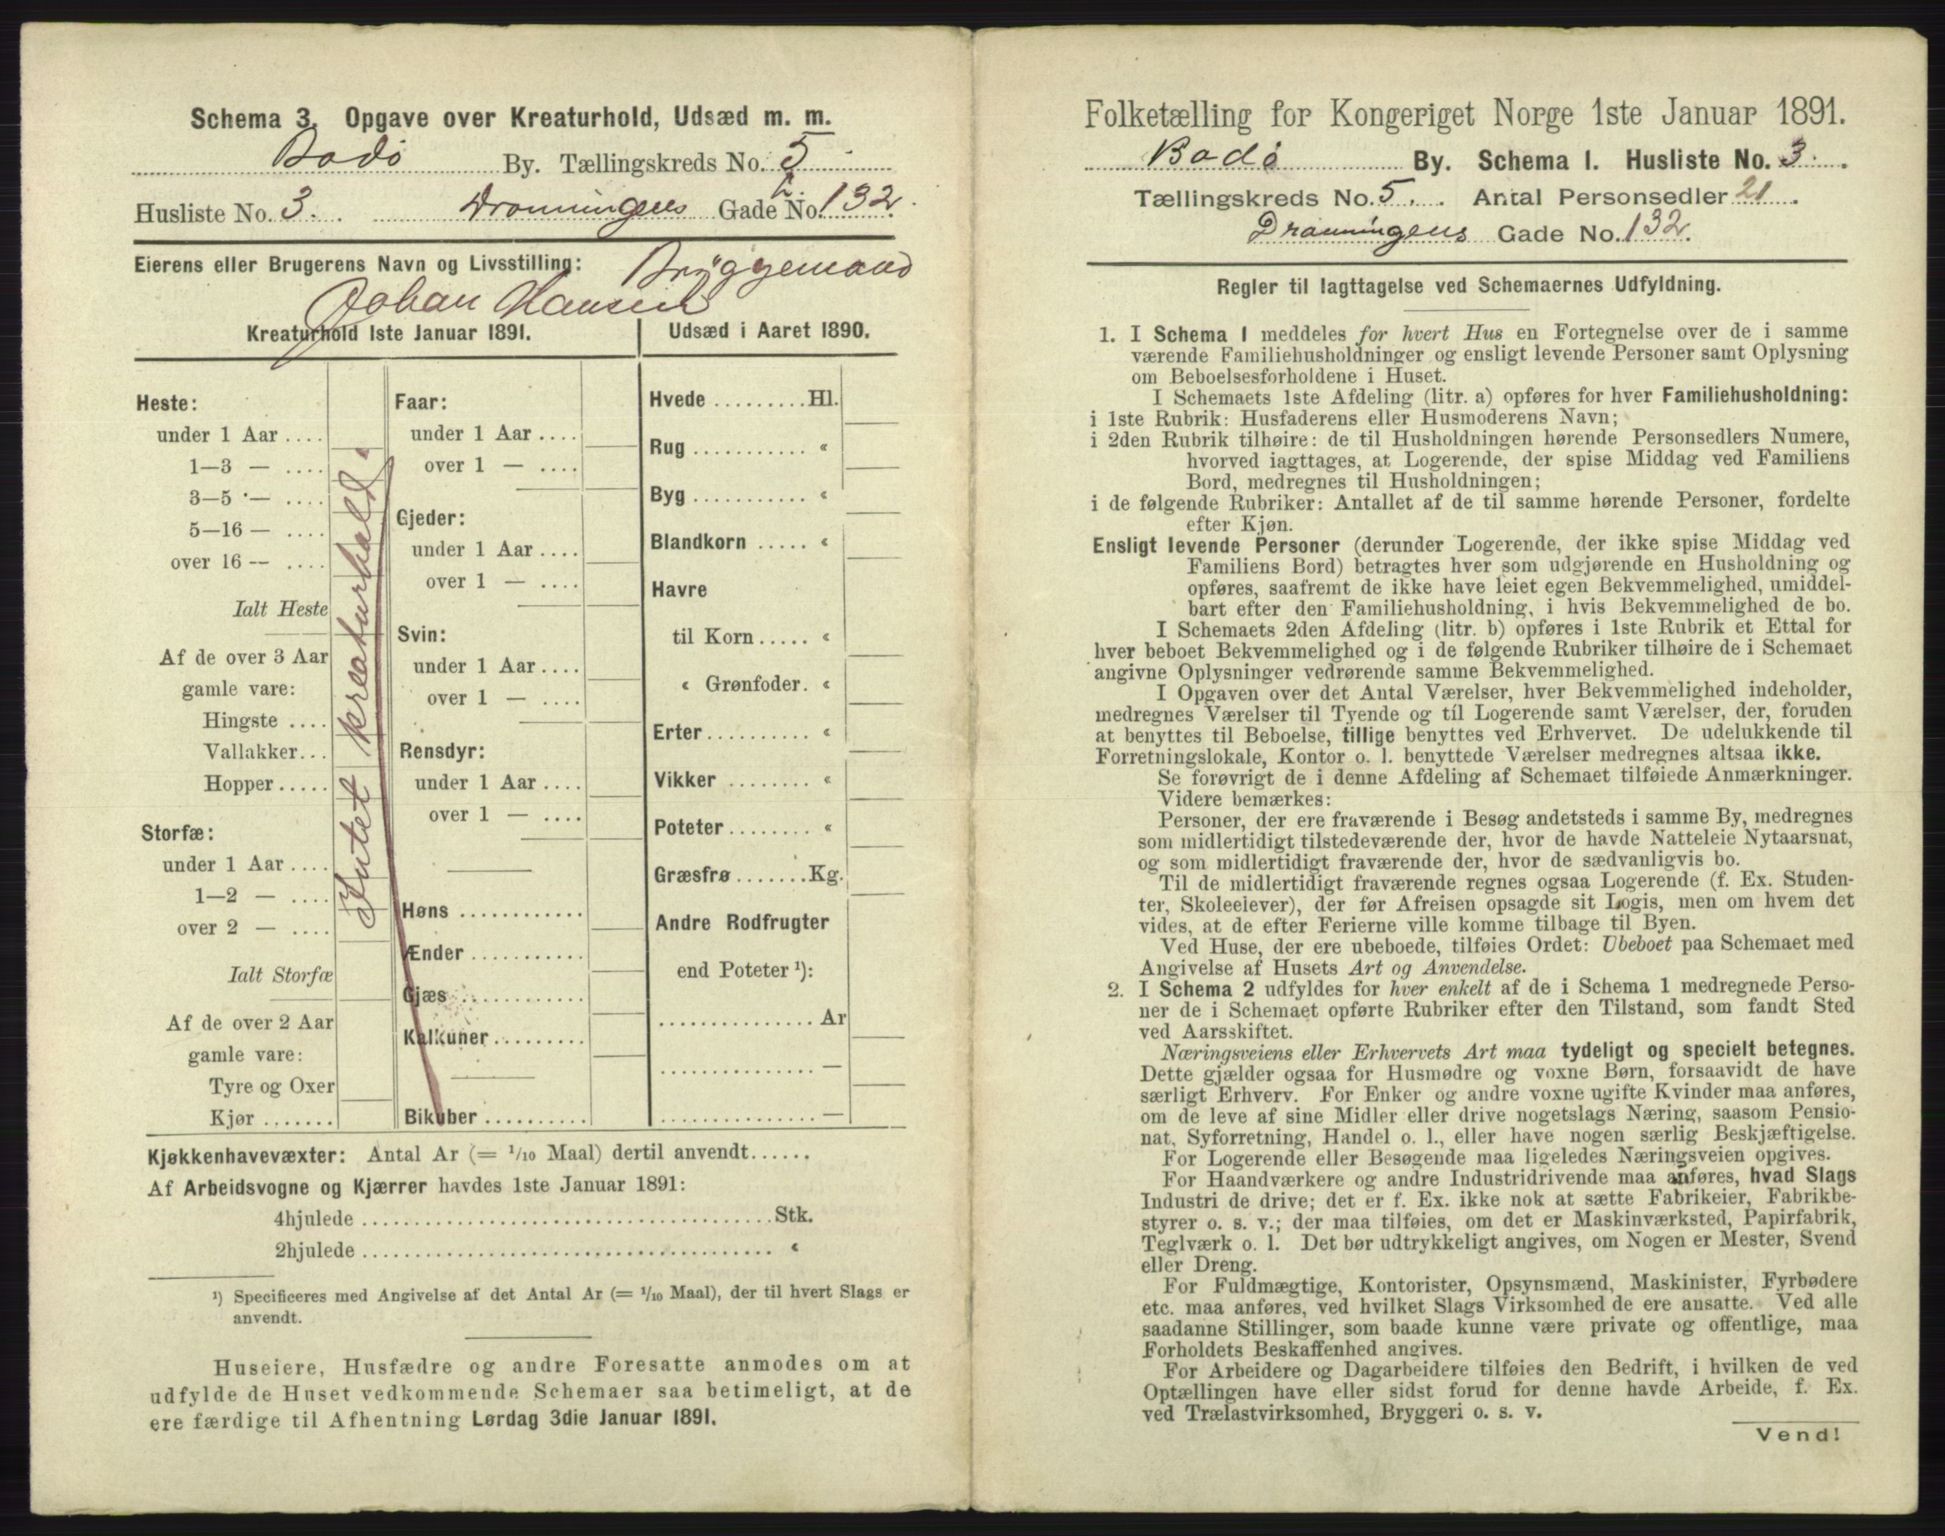 Schema 3. Opgave over Kreaturhold, Udsæd m. m.
Bodö By. Tællingskreds No. 5
Husliste No. 3. Dronningens Gade No. 132.
Eierens eller Brugerens Navn og Livsstilling: Bryggemand
Johan Hansen
Kreaturhold 1ste Januar 1891.
Heste:
under 1 Aar ....
1—3 — ....
3—5 — ....
5—16 — ....
over 16 — ....
Ialt Heste
Af de over 3 Aar
gamle vare:
Hingste ....
Vallakker...
Hopper.....
Storfæ:
under 1 Aar ....
1—2 — ....
over 2 — ....
Ialt Storfæ
Af de over 2 Aar
gamle vare:
Tyre og Oxer
Kjør .......
Intet kreaturhald.
Faar:
under 1 Aar ....
over 1 — ....
Gjeder:
under 1 Aar ....
over 1 — ....
Svin:
under 1 Aar ....
over 1 — ....
Rensdyr:
under 1 Aar ....
over 1 — ....
Høns ............
Ænder ...........
Gjæs ............
Kalkuner.........
Bikuber ..........
Udsæd i Aaret 1890.
Hvede .........Hl.
Rug ........... «
Byg ........... «
Blandkorn ..... «
Havre
til Korn ..... «
« Grønfoder. «
Erter.......... «
Vikker ........ «
Poteter........ «
Græsfrø .......Kg.
Andre Rodfrugter
end Poteter ¹):
............... Ar
............... —
............... —
Kjøkkenhavevæxter: Antal Ar (= 1/10 Maal) dertil anvendt......
Af Arbeidsvogne og Kjærrer havdes 1ste Januar 1891:
4hjulede ........................................Stk.
2hjulede ........................................ «
¹) Specificeres med Angivelse af det Antal Ar (= 1/10 Maal), der til hvert Slags er
anvendt.
Huseiere, Husfædre og andre Foresatte anmodes om at
udfylde de Huset vedkommende Schemaer saa betimeligt, at de
ere færdige til Afhentning Lørdag 3die Januar 1891.
Folketælling for Kongeriget Norge 1ste Januar 1891.
Bodö By. Schema I. Husliste No. 3.
Tællingskreds No. 5. Antal Personsedler 21
Dronningens Gade No. 132.
Regler til Iagttagelse ved Schemaernes Udfyldning.
1. I Schema 1 meddeles for hvert Hus en Fortegnelse over de i samme
værende Familiehusholdninger og ensligt levende Personer samt Oplysning
om Beboelsesforholdene i Huset.
I Schemaets 1ste Afdeling (litr. a) opføres for hver Familiehusholdning:
i 1ste Rubrik: Husfaderens eller Husmoderens Navn;
i 2den Rubrik tilhøire: de til Husholdningen hørende Personsedlers Numere,
hvorved iagttages, at Logerende, der spise Middag ved Familiens
Bord, medregnes til Husholdningen;
i de følgende Rubriker: Antallet af de til samme hørende Personer, fordelte
efter Kjøn.
Ensligt levende Personer (derunder Logerende, der ikke spise Middag ved
Familiens Bord) betragtes hver som udgjørende en Husholdning og
opføres, saafremt de ikke have leiet egen Bekvemmelighed, umiddel-
bart efter den Familiehusholdning, i hvis Bekvemmelighed de bo.
I Schemaets 2den Afdeling (litr. b) opføres i 1ste Rubrik et Ettal for
hver beboet Bekvemmelighed og i de følgende Rubriker tilhøire de i Schemaet
angivne Oplysninger vedrørende samme Bekvemmelighed.
I Opgaven over det Antal Værelser, hver Bekvemmelighed indeholder,
medregnes Værelser til Tyende og til Logerende samt Værelser, der, foruden
at benyttes til Beboelse, tillige benyttes ved Erhvervet. De udelukkende til
Forretningslokale, Kontor o. l. benyttede Værelser medregnes altsaa ikke.
Se forøvrigt de i denne Afdeling af Schemaet tilføiede Anmærkninger.
Videre bemærkes:
Personer, der ere fraværende i Besøg andetsteds i samme By, medregnes
som midlertidigt tilstedeværende der, hvor de havde Natteleie Nytaarsnat,
og som midlertidigt fraværende der, hvor de sædvanligvis bo.
Til de midlertidigt fraværende regnes ogsaa Logerende (f. Ex. Studen-
ter, Skoleelever), der før Afreisen opsagde sit Logis, men om hvem det
vides, at de efter Ferierne ville komme tilbage til Byen.
Ved Huse, der ere ubeboede, tilføies Ordet: Ubeboet paa Schemaet med
Angivelse af Husets Art og Anvendelse.
2. I Schema 2 udfyldes for hver enkelt af de i Schema 1 medregnede Perso-
ner de i Schemaet opførte Rubriker efter den Tilstand, som fandt Sted
ved Aarsskiftet.
Næringsveiens eller Erhvervets Art maa tydeligt og specielt betegnes.
Dette gjælder ogsaa for Husmødre og voxne Børn, forsaavidt de have
særligt Erhverv. For Enker og andre voxne ugifte Kvinder maa anføres,
om de leve af sine Midler eller drive nogetslags Næring, saasom Pensio-
nat, Syforretning, Handel o. l., eller have nogen særlig Beskjæftigelse.
For Logerende eller Besøgende maa ligeledes Næringsveien opgives.
For Haandværkere og andre Industridrivende maa anføres, hvad Slags
Industri de drive; det er f. Ex. ikke nok at sætte Fabrikeier, Fabrikbe-
styrer o. s. v.; der maa tilføies, om det er Maskinværksted, Papirfabrik,
Teglværk o. l. Det bør udtrykkeligt angives, om Nogen er Mester, Svend
eller Dreng.
For Fuldmægtige, Kontorister, Opsynsmænd, Maskinister, Fyrbødere
etc. maa anføres, ved hvilket Slags Virksomhed de ere ansatte. Ved alle
saadanne Stillinger, som baade kunne være private og offentlige, maa
Forholdets Beskaffenhed angives.
For Arbeidere og Dagarbeidere tilføies den Bedrift, i hvilken de ved
Optællingen have eller sidst forud for denne havde Arbeide, f. Ex.
ved Trælastvirksomhed, Bryggeri o. s. v.
Vend!